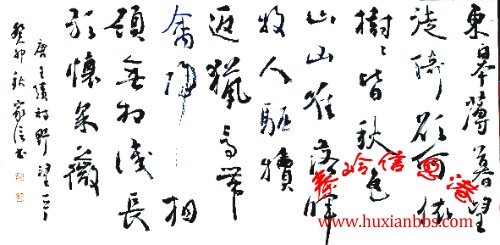 東皋薄暮望
徙倚欲何依
樹々皆秋色
山山唯落暉
牧人驅犢
返獵馬帶
禽歸相
顧無相識長
歌懷采薇
唐王績詩野望一首
癸卯秋家信书
www.huxianbbs.com